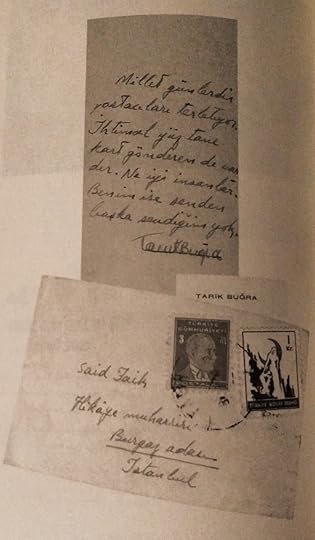 Millet günlerdir
postacıları terletiyor.
İhtimal yüz tane
kart gönderen de var
dır. Ne iyi insanlar.
Benim ise senden
başka sevdiğim yok.
Tarık Buğra
TARIK BUĞRA
TÜRKİYE
CUMHURİYETİ
3
1
Kr.
Said Faik
Hikâye muharriri
Burgaz adası
İstanbul